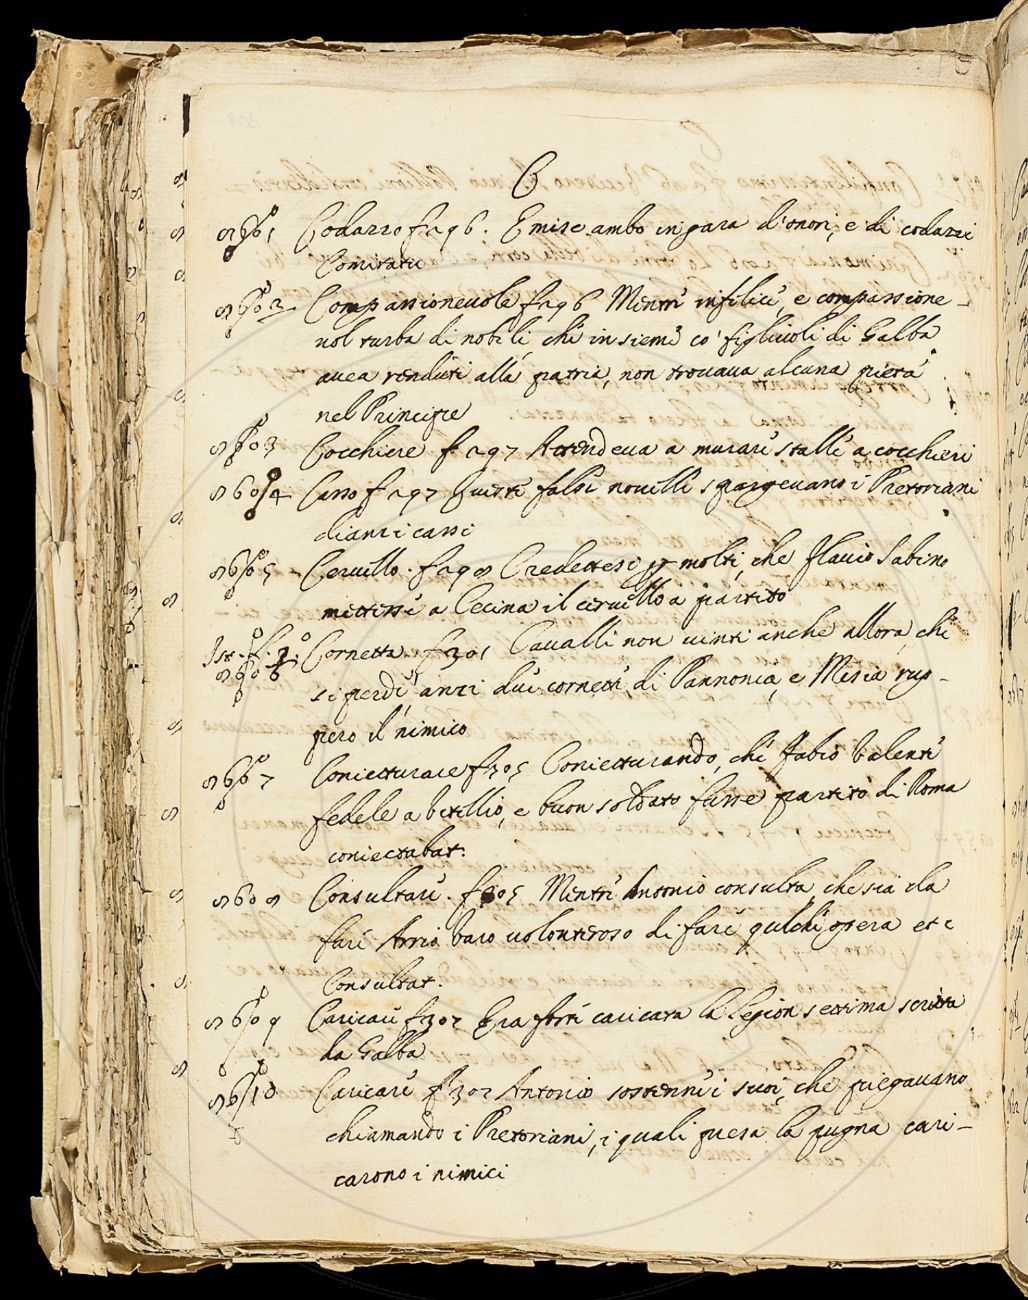 C.
8601 Codazzo f 296. Emise ambo in gara d'onori, e di codazzi
Comitatu
8602 Compassioneuole f 296 Mentre infelice, e compassione-
uol turba di nobili che insieme co' figliuoli di Galba
auea renduti alla patria, non trouaua alcuna pietà
nel Principe
8603 Cocchiere f 297 Attendeua a murare stalle a cocchieri
8604 Casso f 297 Queste false nouelle spargeuano i Pretoriani
dianzi cassi
8605 Ceruello. f 298 Credettesi molti, che Flauio Sabino
mettesse a Cecina il ceruello a partito
Ist. f. 3
8606 Cornetta. f 301 Caualli non uinti anche allora, che
si perdé, anzi due cornette, di Pannonia, e Mesia rup-
pero il nimico
8607 Conietturare f 305 Conietturando, che Fabio Valente
fedele a Vitellio, e buon soldato fusse partito di Roma
coniectabat.
8608 Consultare. f 305 Mentre Antonio consulta, che sia da
fare Arrio Varo uolonteroso di fare qualche opera etc
Consultat.
8609 Caricare f 302 Era forte caricata la legion settima scritta
da Galba
8610 Caricare f 302 Antonio sostenne i suoi, che piegauano
chiamando i Pretoriani, i quali presa la pugna cari-
carono i nimici